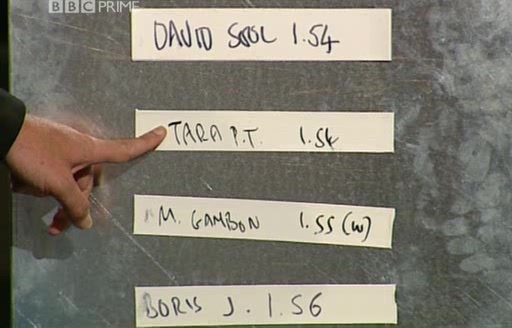 BBC PRIME
DAVID SOUL 1.54
TARA P.T. 1.54
M. GAMBON 1.55 (W)
BORIS J. 1.56